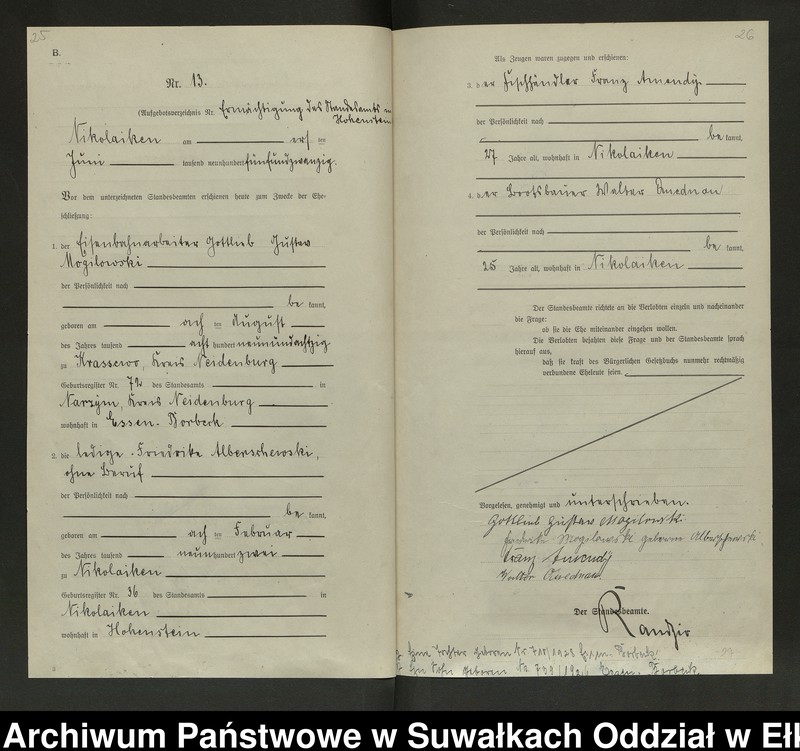 25
B.
Nr. 13.
(Aufgebotsverzeichnis Nr. Ermächtigung des Standesamts in
Hohenstein
Nikolaiken am ersten
Juni tausend neunhundert fünfundzwanzig.
Vor dem unterzeichneten Standesbeamten erschienen heute zum Zwecke der Ehe-
schließung:
1. der Eisenbahnarbeiter Gottlieb Gustav
Mogilowski
der Persönlichkeit nach
be kannt,
geboren am achten August
des Jahres tausend acht hundert neunundachtzig
zu Krassewo, Kreis Neidenburg
Geburtsregister Nr. 72 des Standesamts in
Narzym, Kreis Neidenburg
wohnhaft in Essen-Borbeck
2. die ledige Friedrike Alberschewski,
ohne Beruf
der Persönlichkeit nach
be kannt,
geboren am achten Februar
des Jahres tausend neunhundert zwei
zu Nikolaiken
Geburtsregister Nr. 36 des Standesamts in
Nikolaiken
wohnhaft in Hohenstein
26
Als Zeugen waren zugegen und erschienen:
3. der Fischhändler Franz Amendy
der Persönlichkeit nach
be kannt,
27 Jahre alt, wohnhaft in Nikolaiken
4. der Bootsbauer Walter
der Persönlichkeit nach
be kannt,
25 Jahre alt, wohnhaft in Nikolaiken
Der Standesbeamte richtete an die Verlobten einzeln und nacheinander
die Frage:
ob sie die Ehe miteinander eingehen wollen.
Die Verlobten bejahten diese Frage und der Standesbeamte sprach
hierauf aus,
daß sie kraft des Bürgerlichen Gesetzbuchs nunmehr rechtmäßig
verbundene Eheleute seien.
Vorgelesen, genehmigt und unterschrieben.
Gottlieb Gustav Mogilowski
Friedrike Mogilowski geborene Alberschewski
Franz Amendy
Walter
Der Standesbeamte.
Tochter geboren Nr. 1923 Essen-Borbeck
Sohn geboren Nr. Essen-Borbeck
Archiwum Państwowe w Suwałkach Oddział w Eł